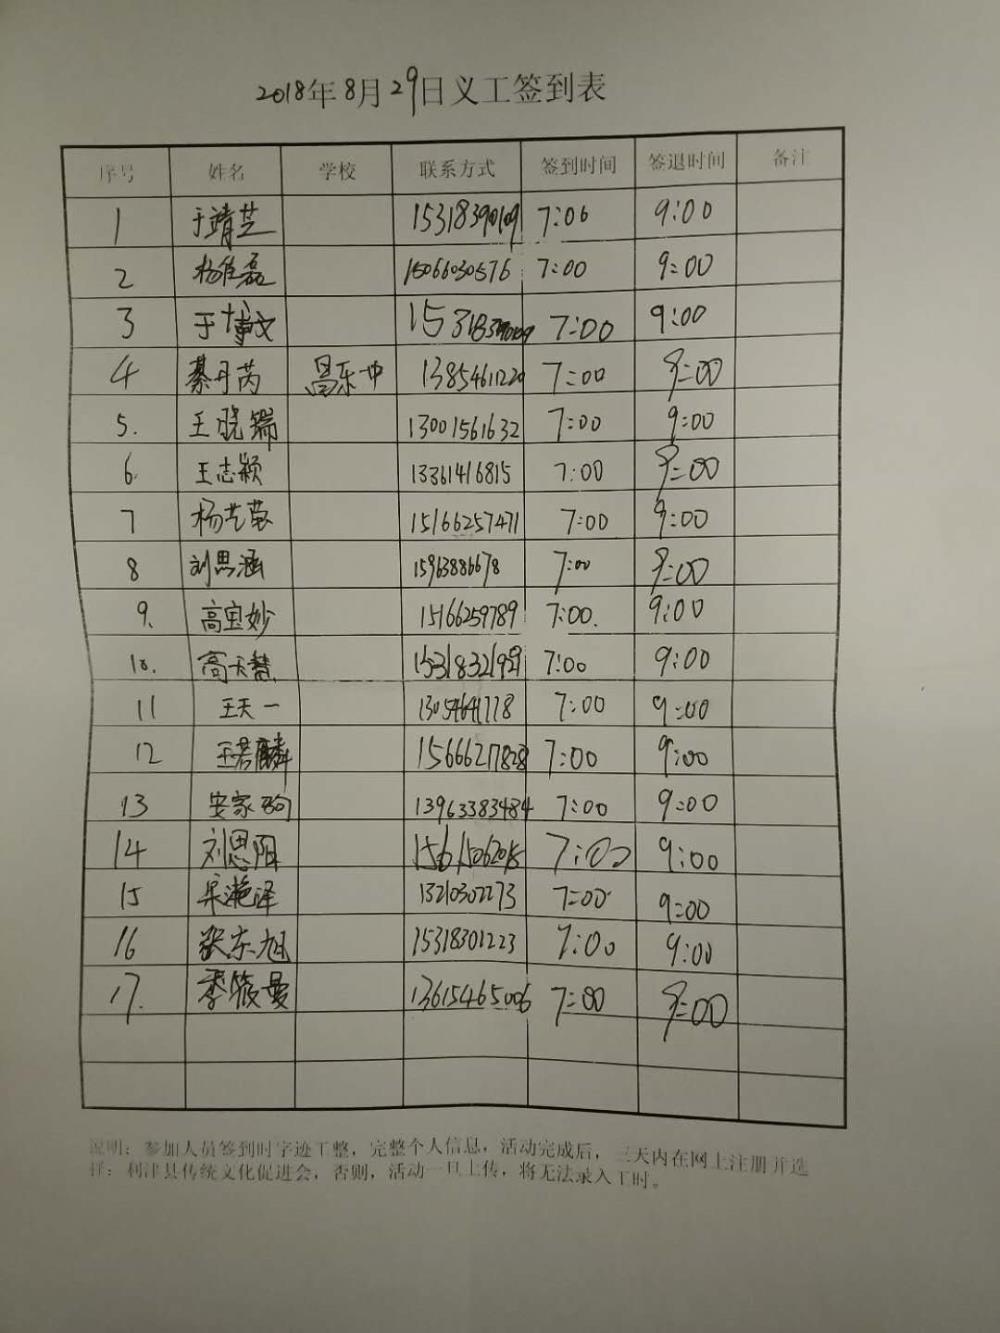 2018年8月29日义工签到表
序号 姓名 学校 联系方式 签到时间 签退时间 备注
1 于靖芝 15318390109 7:00 9:00
2 杨佳磊 15066030576 7:00 9:00
3 于博文 15318390109 7:00 9:00
4 綦丹芮 昌乐一中 13854611220 7:00 9:00
5. 王晓端 13001561632 7:00 9:00
6. 王志颖 13361416815 7:00 9:00
7 杨艺蓉 15166257471 7:00 9:00
8 刘思涵 15963886678 7:00 9:00
9. 高宝妙 15166259789 7:00. 9:00
10. 高天慧 7:00 9:00
11 王天一 13054641778 7:00 9:00
12 王若麟 15666217828 7:00 9:00
13 安家驹 13963383484 7:00 9:00
14 刘思阳 7:00 9:00
15 滟泽 13210302273 7:00 9:00
16 张东旭 15318301223 7:00 9:00
17. 李筱曼 13615465006 7:00 9:00
说明：参加人员签到时字迹工整，完整个人信息，活动完成后，三天内在网上注册并选
择：利津县传统文化促进会，否则，活动一旦上传，将无法录入工时。